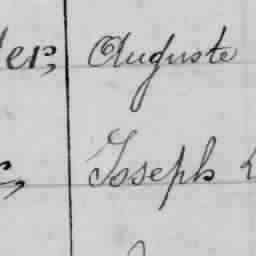 ler, Auguste
Joseph